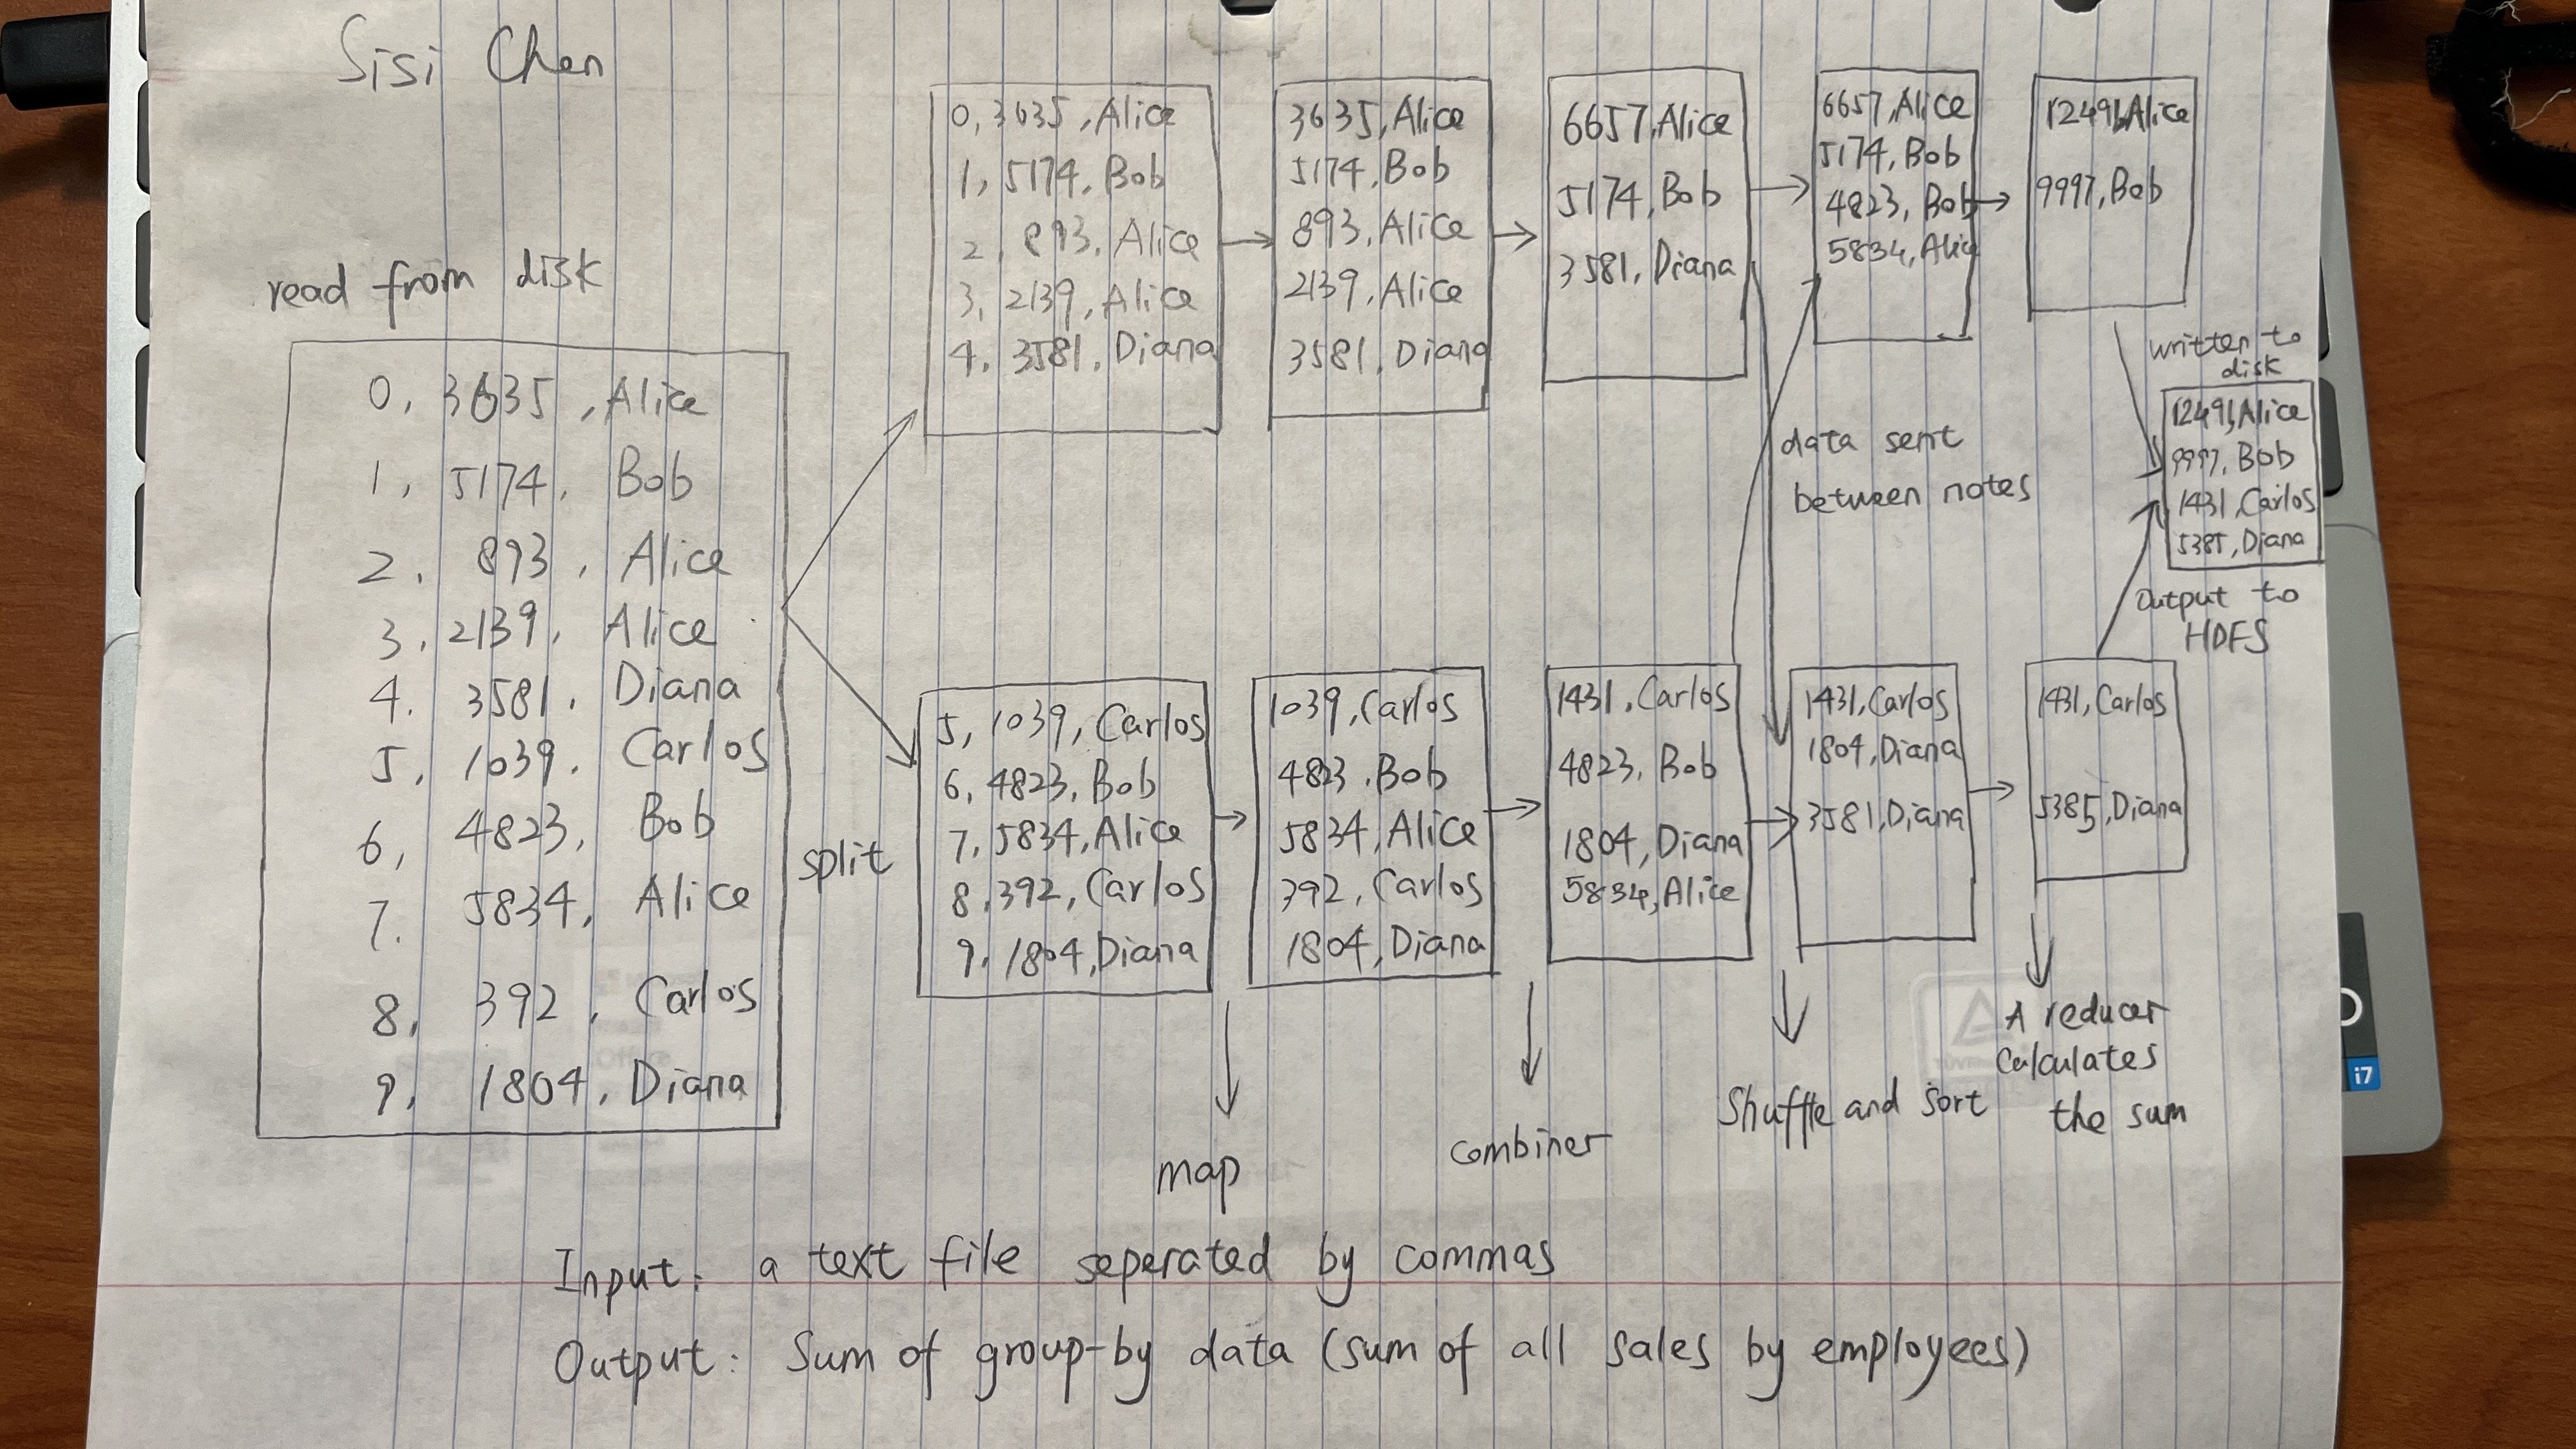 Sisi Chen
read from disk
0, 3635, Alice
1, 5174, Bob
2, 893, Alice
3, 2139, Alice
4. 3581, Diana
5, 1039, Carlos
6, 4823, Bob
7. 5834, Alice
8, 392, Carlos
9, 1804, Diana
split
0, 3635, Alice
1, 5174, Bob
2, 893, Alice
3, 2139, Alice
4, 3581, Diana
3635, Alice
5174, Bob
893, Alice
2139, Alice
3581, Diana
6657, Alice
5174, Bob
3581, Diana
6657, Alice
5174, Bob
4823, Bob
5834, Alice
12491, Alice
9997, Bob
data sent
between notes
written to
disk
12491, Alice
9997, Bob
1431, Carlos
5385, Diana
Output to
HDFS
5, 1039, Carlos
6, 4823, Bob
7, 5834, Alice
8, 392, Carlos
9, 1804, Diana
1039, Carlos
4823, Bob
5834, Alice
392, Carlos
1804, Diana
1431, Carlos
4823, Bob
1804, Diana
5834, Alice
1431, Carlos
1804, Diana
3581, Diana
1431, Carlos
5385, Diana
map
combiner
Shuffle and sort
A reducer
calculates
the sum
Input: a text file seperated by commas
Output: Sum of group-by data (sum of all sales by employees)
i7